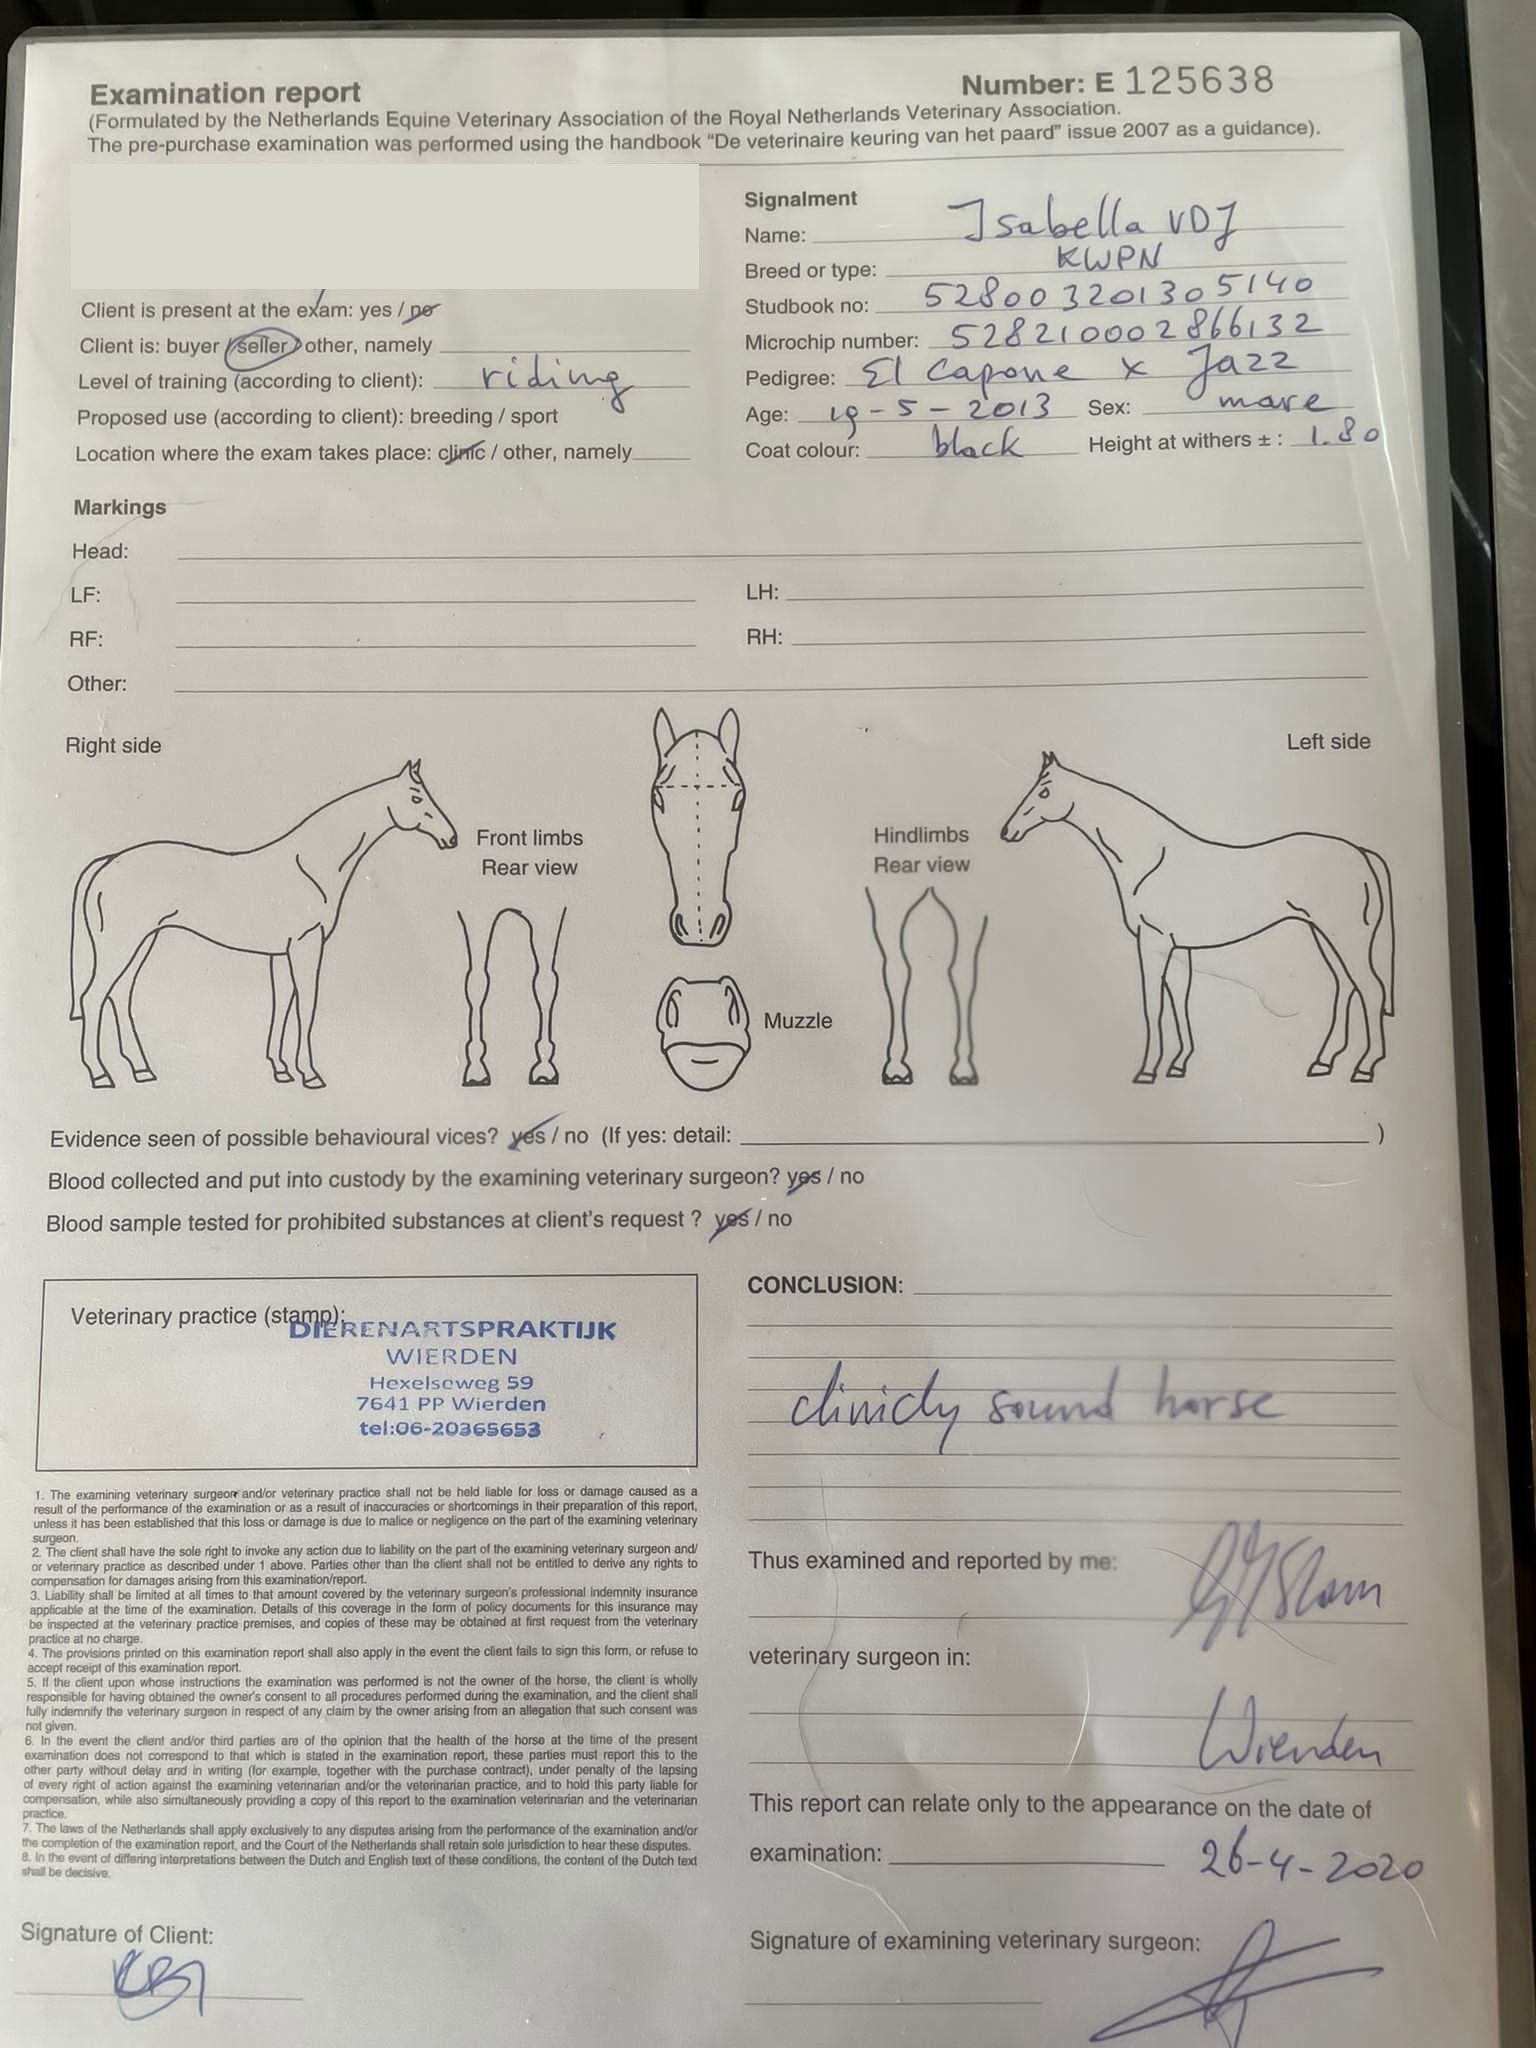 Examination report
Number: E 125638
(Formulated by the Netherlands Equine Veterinary Association of the Royal Netherlands Veterinary Association.
The pre-purchase examination was performed using the handbook "De veterinaire keuring van het paard" issue 2007 as a guidance).
Client is present at the exam: yes / no
Client is: buyer / seller / other, namely
Level of training (according to client): riding
Proposed use (according to client): breeding / sport
Location where the exam takes place: clinic / other, namely
Signalment
Name: Isabella VDJ
Breed or type: KWPN
Studbook no: 528003201305140
Microchip number: 528210002866132
Pedigree: El Capone x Jazz
Age: 19-5-2013 Sex: mare
Coat colour: black Height at withers ± : 1.80
Markings
Head:
LF: LH:
RF: RH:
Other:
Right side
Left side
Front limbs
Rear view
Hindlimbs
Rear view
Muzzle
Evidence seen of possible behavioural vices? yes / no (If yes: detail: )
Blood collected and put into custody by the examining veterinary surgeon? yes / no
Blood sample tested for prohibited substances at client's request ? yes / no
Veterinary practice (stamp):
DIERENARTSPRAKTIJK
WIERDEN
Hexelseweg 59
7641 PP Wierden
tel:06-20365653
1. The examining veterinary surgeon and/or veterinary practice shall not be held liable for loss or damage caused as a
result of the performance of the examination or as a result of inaccuracies or shortcomings in their preparation of this report,
unless it has been established that this loss or damage is due to malice or negligence on the part of the examining veterinary
surgeon.
2. The client shall have the sole right to invoke any action due to liability on the part of the examining veterinary surgeon and/
or veterinary practice as described under 1 above. Parties other than the client shall not be entitled to derive any rights to
compensation for damages arising from this examination/report.
3. Liability shall be limited at all times to that amount covered by the veterinary surgeon's professional indemnity insurance
applicable at the time of the examination. Details of this coverage in the form of policy documents for this insurance may
be inspected at the veterinary practice premises, and copies of these may be obtained at first request from the veterinary
practice at no charge.
4. The provisions printed on this examination report shall also apply in the event the client fails to sign this form, or refuse to
accept receipt of this examination report.
5. If the client upon whose instructions the examination was performed is not the owner of the horse, the client is wholly
responsible for having obtained the owner's consent to all procedures performed during the examination, and the client shall
fully indemnify the veterinary surgeon in respect of any claim by the owner arising from an allegation that such consent was
not given.
6. In the event the client and/or third parties are of the opinion that the health of the horse at the time of the present
examination does not correspond to that which is stated in the examination report, these parties must report this to the
other party without delay and in writing (for example, together with the purchase contract), under penalty of the lapsing
of every right of action against the examining veterinarian and/or the veterinarian practice, and to hold this party liable for
compensation, while also simultaneously providing a copy of this report to the examination veterinarian and the veterinarian
practice.
7. The laws of the Netherlands shall apply exclusively to any disputes arising from the performance of the examination and/or
the completion of the examination report, and the Court of the Netherlands shall retain sole jurisdiction to hear these disputes.
8. In the event of differing interpretations between the Dutch and English text of these conditions, the content of the Dutch text
shall be decisive.
CONCLUSION:
clinicly sound horse
Thus examined and reported by me:
veterinary surgeon in:
Wierden
This report can relate only to the appearance on the date of
examination: 26-4-2020
Signature of Client:
Signature of examining veterinary surgeon: